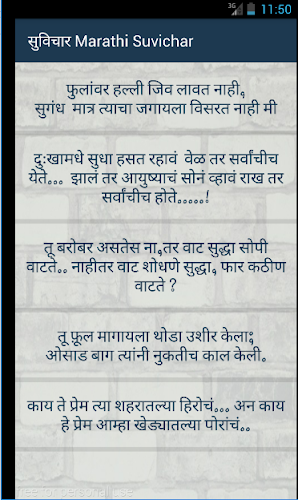 3G 11:50
सुविचार Marathi Suvichar
फुलांवर हल्ली जिव लावत नाही,
सुगंध मात्र त्याचा जगायला विसरत नाही मी
दुःखामधे सुधा हसत रहावं वेळ तर सर्वांचीच
येते... झालं तर आयुष्याचं सोनं व्हावं राख तर
सर्वांचीच होते.....!
तू बरोबर असतेस ना,तर वाट सुद्धा सोपी
वाटते.. नाहीतर वाट शोधणे सुद्धा, फार कठीण
वाटते ?
तू फ़ूल मागायला थोडा उशीर केला;
ओसाड बाग त्यांनी नुकतीच काल केली.
काय ते प्रेम त्या शहरातल्या हिरोचं... अन काय
हे प्रेम आम्हा खेड्यातल्या पोरांचं..